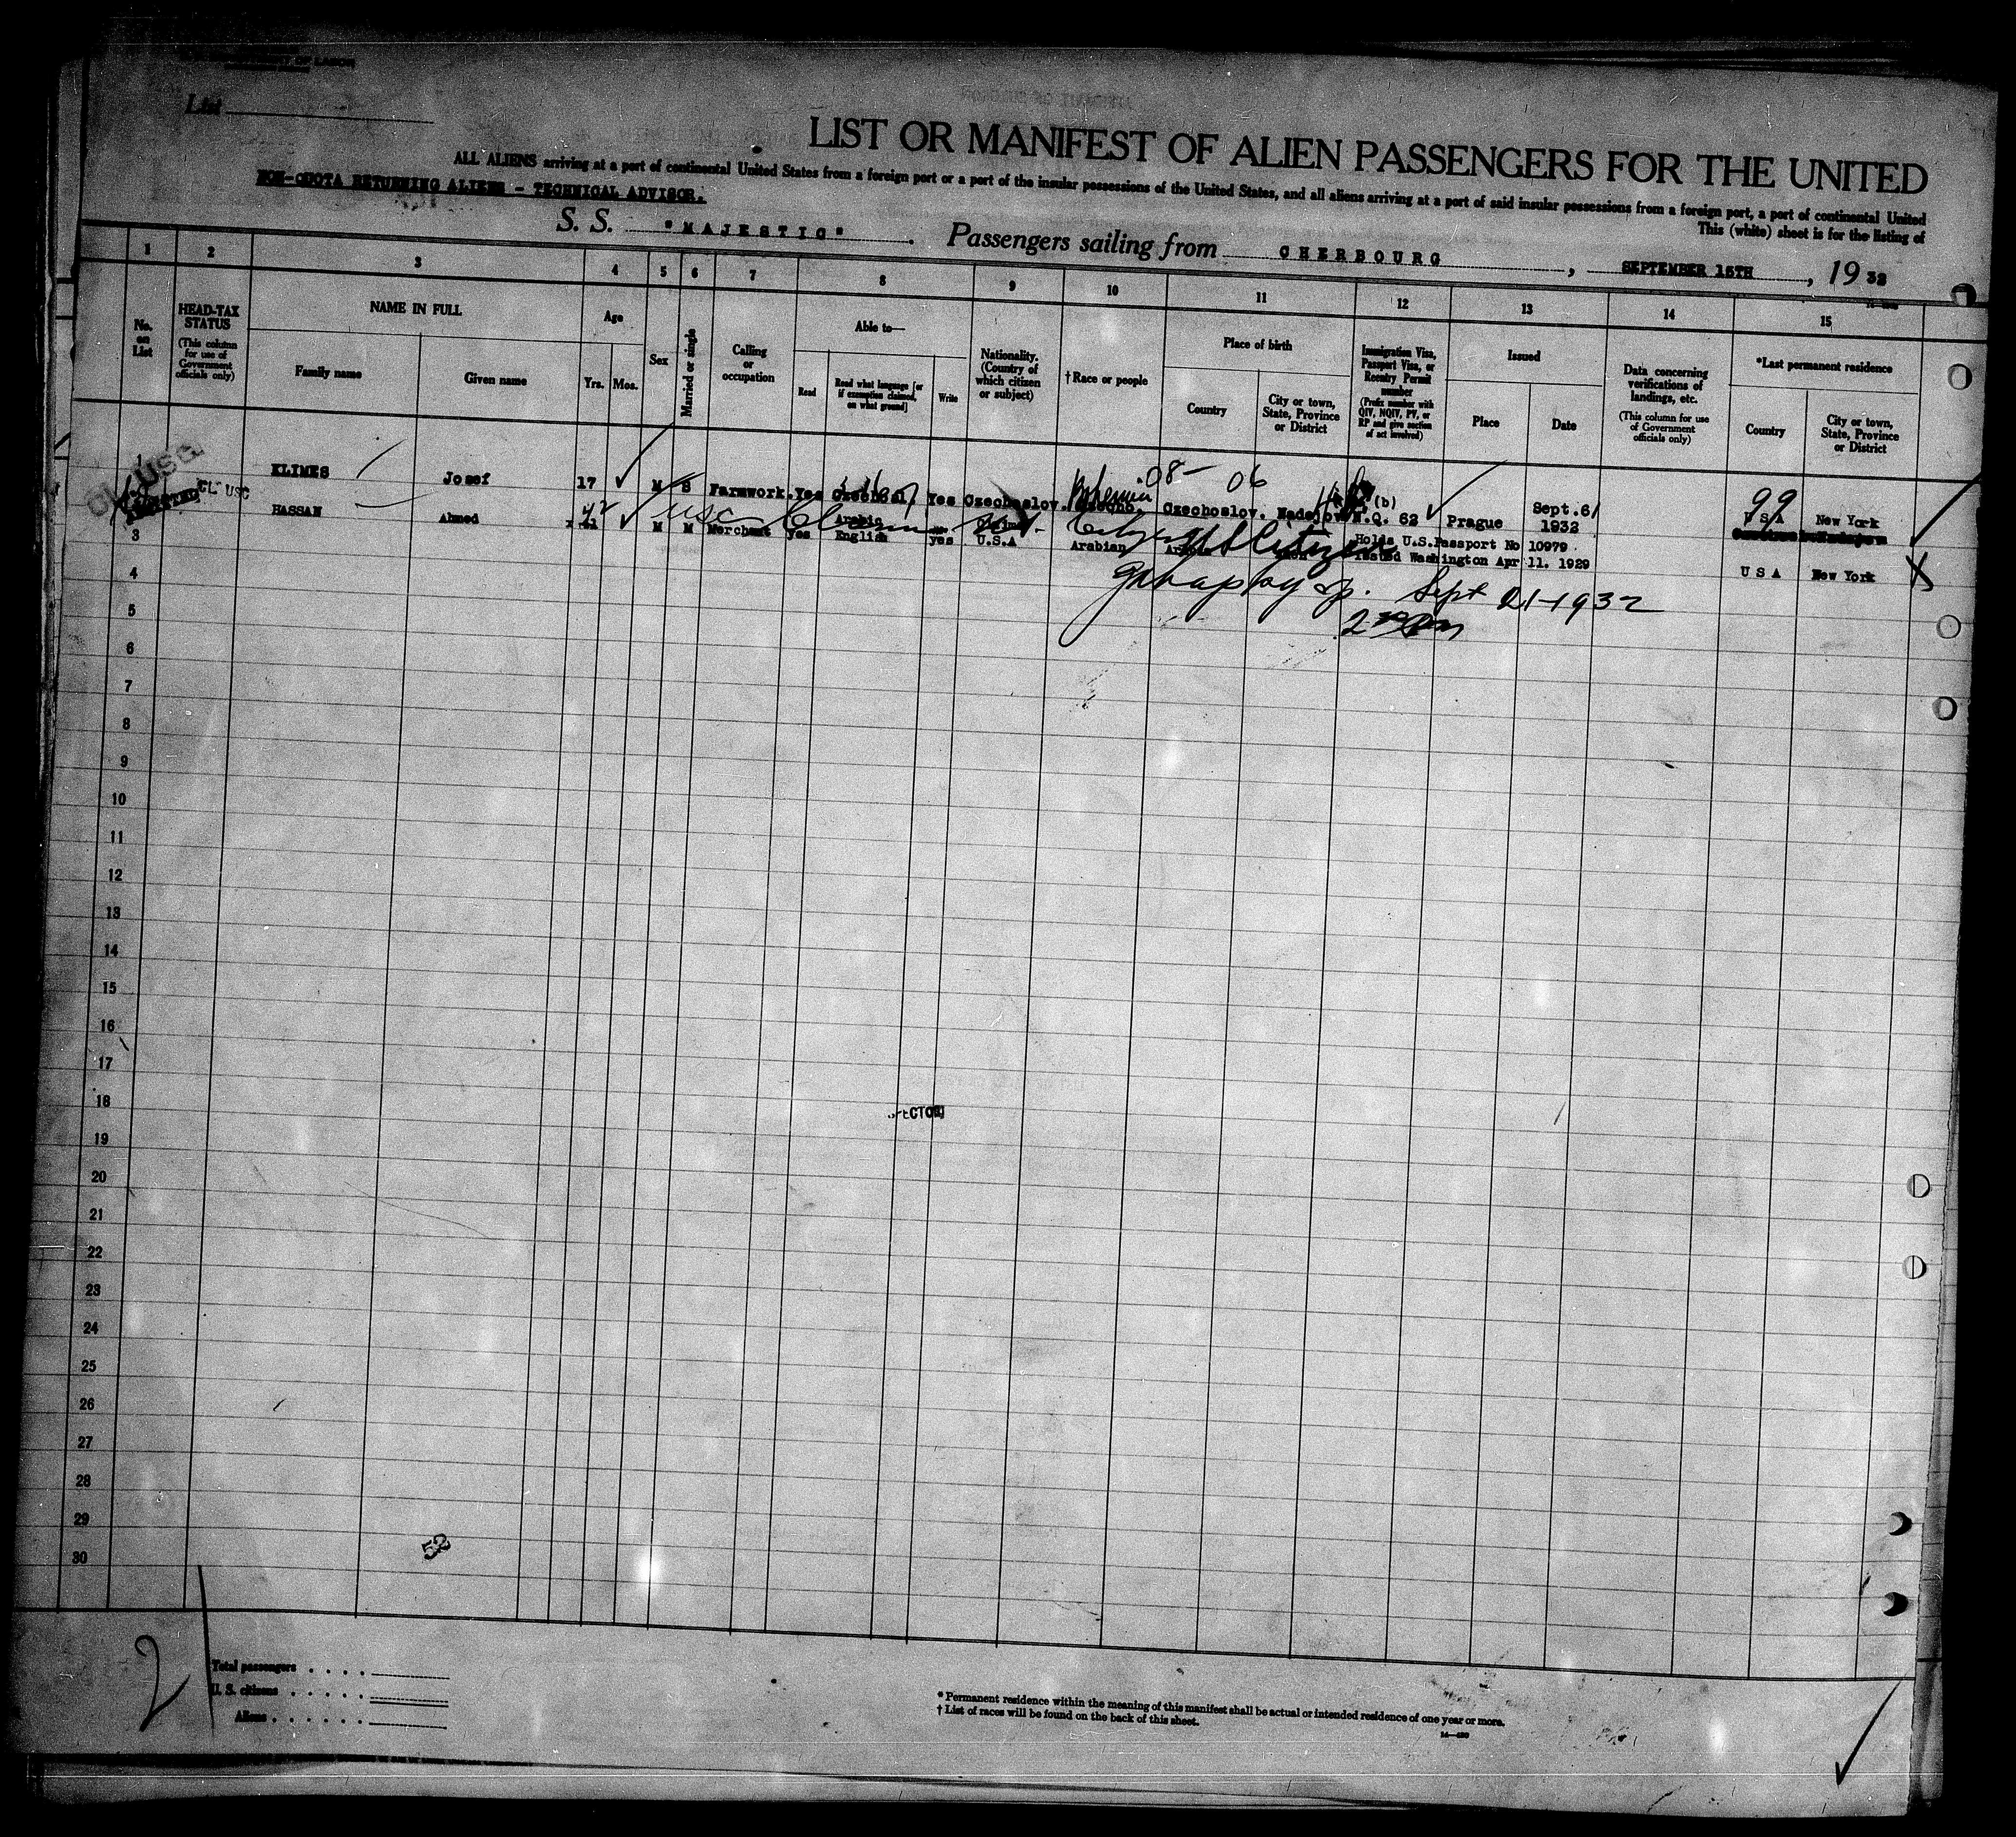 OF LABOR
List
LIST OR MANIFEST OF ALIEN PASSENGERS FOR THE UNITED
ALL ALIENS arriving at a port of continental United States from a foreign port or a port of the insular possessions of the United States, and all aliens arriving at a port of said insular possessions from a foreign port, a port of continental United
NON-QUOTA RETURNING ALIENS - TECHNICAL ADVISOR.
This (white) sheet is for the listing of
S. S. "MAJESTIC" Passengers sailing from CHERBOURG, SEPTEMBER 15TH, 1932
1 2 3 4 5 6 7 8 9 10 11 12 13 14 15
No. on List
HEAD-TAX STATUS
(This column for use of Government officials only)
NAME IN FULL
Family name
Given name
Age
Yrs.
Mos.
Sex
Married or single
Calling or occupation
Able to—
Read
Read what language [or if exemption claimed, on what ground]
Write
Nationality. (Country of which citizen or subject)
† Race or people
Place of birth
Country
City or town, State, Province or District
Immigration Visa, Passport Visa, or Reentry Permit number
(Prefix number with QIV, NQIV, PV, or RP and give section of act involved)
Issued
Place
Date
Data concerning verifications of landings, etc.
(This column for use of Government officials only)
*Last permanent residence
Country
City or town, State, Province or District
08- 06
99
1 KLIMES Josef 17 M S Farmwork. Yes Yes Czechoslov. Bohemian Czechoslov. (b) N.Q. 62 Prague Sept.6/ 1932 USA New York
CL USC
ADMITTED
CL USC
HASSAN Ahmed 42 M M Merchant yes Arabic English yes U.S.A Arabian Holds U.S.Passport No 10979
Issued Washington Apr 11. 1929
U S A New York
USC
Citizen
Sept 21-1932
3
4
5
6
7
8
9
10
11
12
13
14
15
16
17
18
19
20
21
22
23
24
25
26
27
28
29
30
52
2
Total passengers
U. S. citizens
Aliens
* Permanent residence within the meaning of this manifest shall be actual or intended residence of one year or more.
† List of races will be found on the back of this sheet.